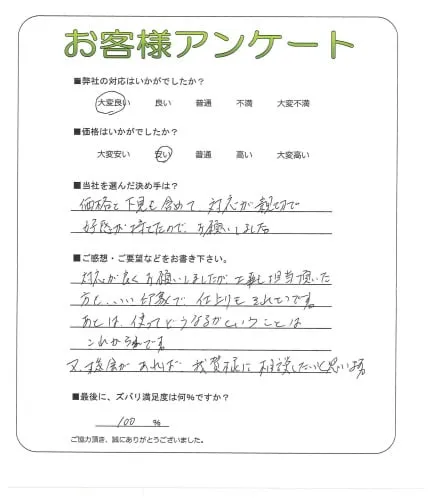 お客様アンケート
■弊社の対応はいかがでしたか?
大変良い 良い 普通 不満 大変不満
■価格はいかがでしたか?
大変安い 安い 普通 高い 大変高い
■当社を選んだ決め手は?
価格と下見も含めて、対応が親切で
好感が持てたので、お願いしました
■ご感想・ご要望などをお書き下さい。
対応が良くお願いしましたが工事も担当頂いた
方も、いい印象で、仕上りもきれいです
あとは、使ってどうなるかということは
これからです
又、機会があれば、貴様に相談したいと思います
■最後に、ズバリ満足度は何%ですか?
100 %
ご協力頂き、誠にありがとうございました。